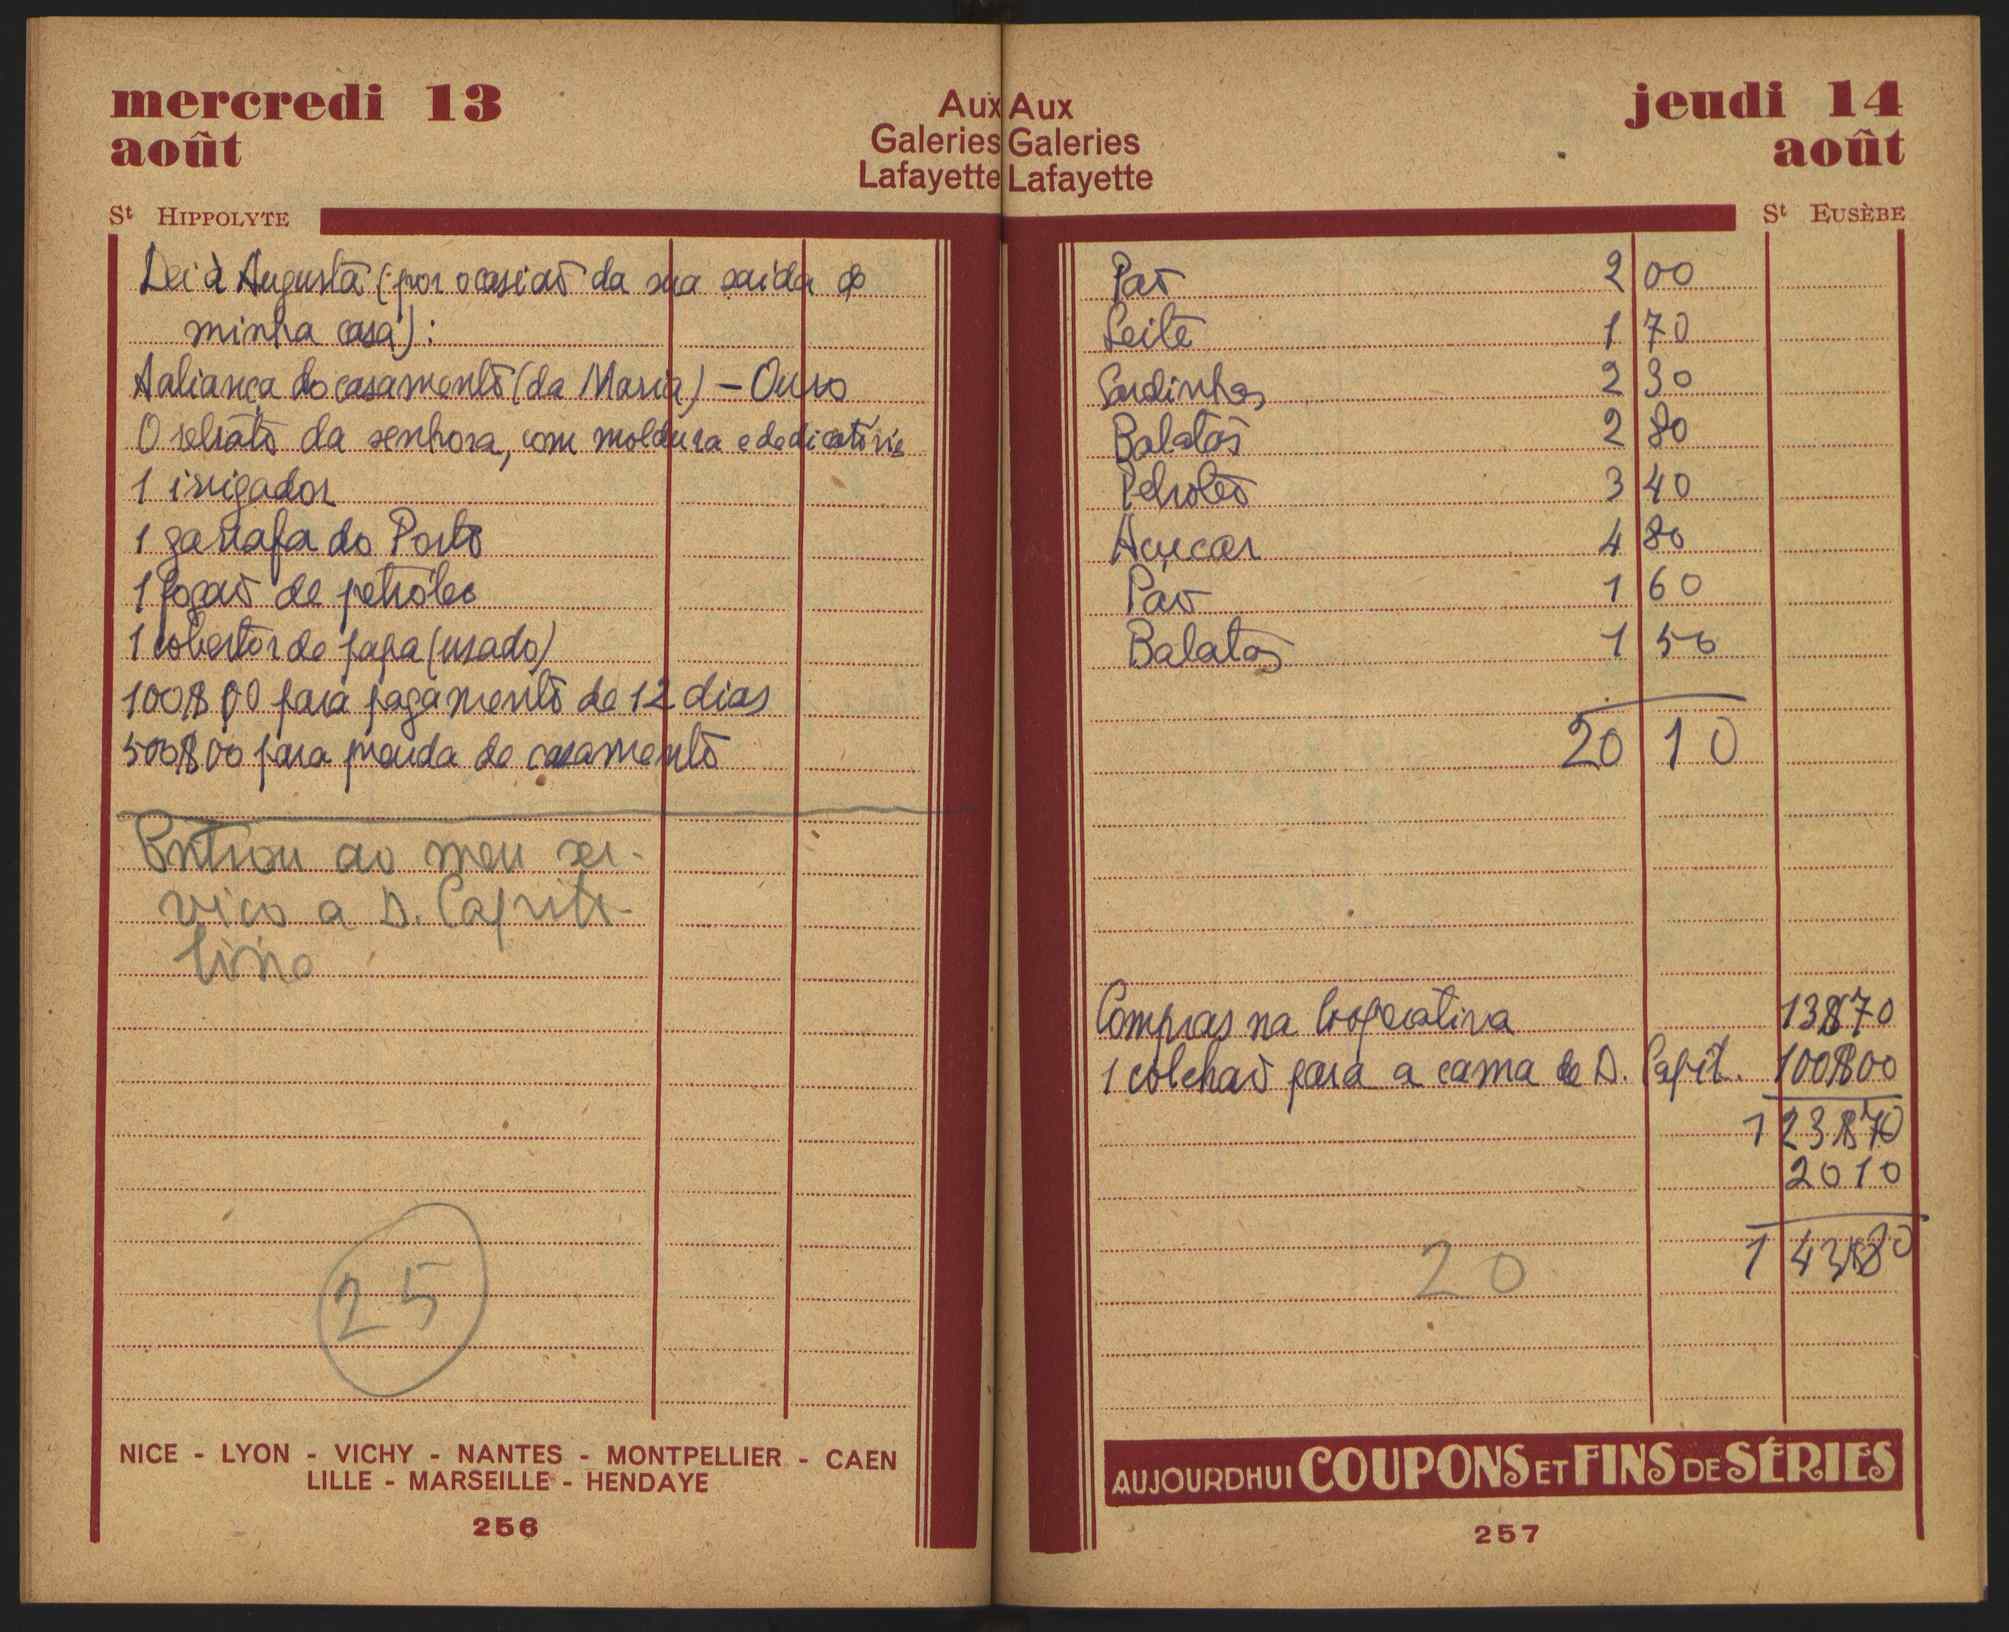 mercredi 13
août
Aux
Galeries
Lafayette
St HIPPOLYTE
Dei à Augusta (por ocasião da sua saída de
minha casa):
A aliança do casamento (da Maria) – Ouro
O retrato da senhora, com moldura e dedicatória
1 irrigador
1 garrafa do Porto
1 fogão de petróleo
1 cobertor de papa (usado)
100$00 para pagamento de 12 dias
500$00 para prenda de casamento
Entrou ao meu ser-
viço a D. Capito-
lina
25
NICE - LYON - VICHY - NANTES - MONTPELLIER - CAEN
LILLE - MARSEILLE - HENDAYE
256
jeudi 14
août
Aux
Galeries
Lafayette
St EUSÈBE
Pão 2 00
Leite 1 70
Sardinhas 2 30
Batatas 2 80
Petroleo 3 40
Açucar 4 80
Pão 1 60
Batatas 1 50
20 10
Compras na Cooperativa 13$70
1 colchão para a cama de D. Capit. 100$00
123$70
2010
20
143$80
AUJOURDHUI COUPONS ET FINS DE SÉRIES
257